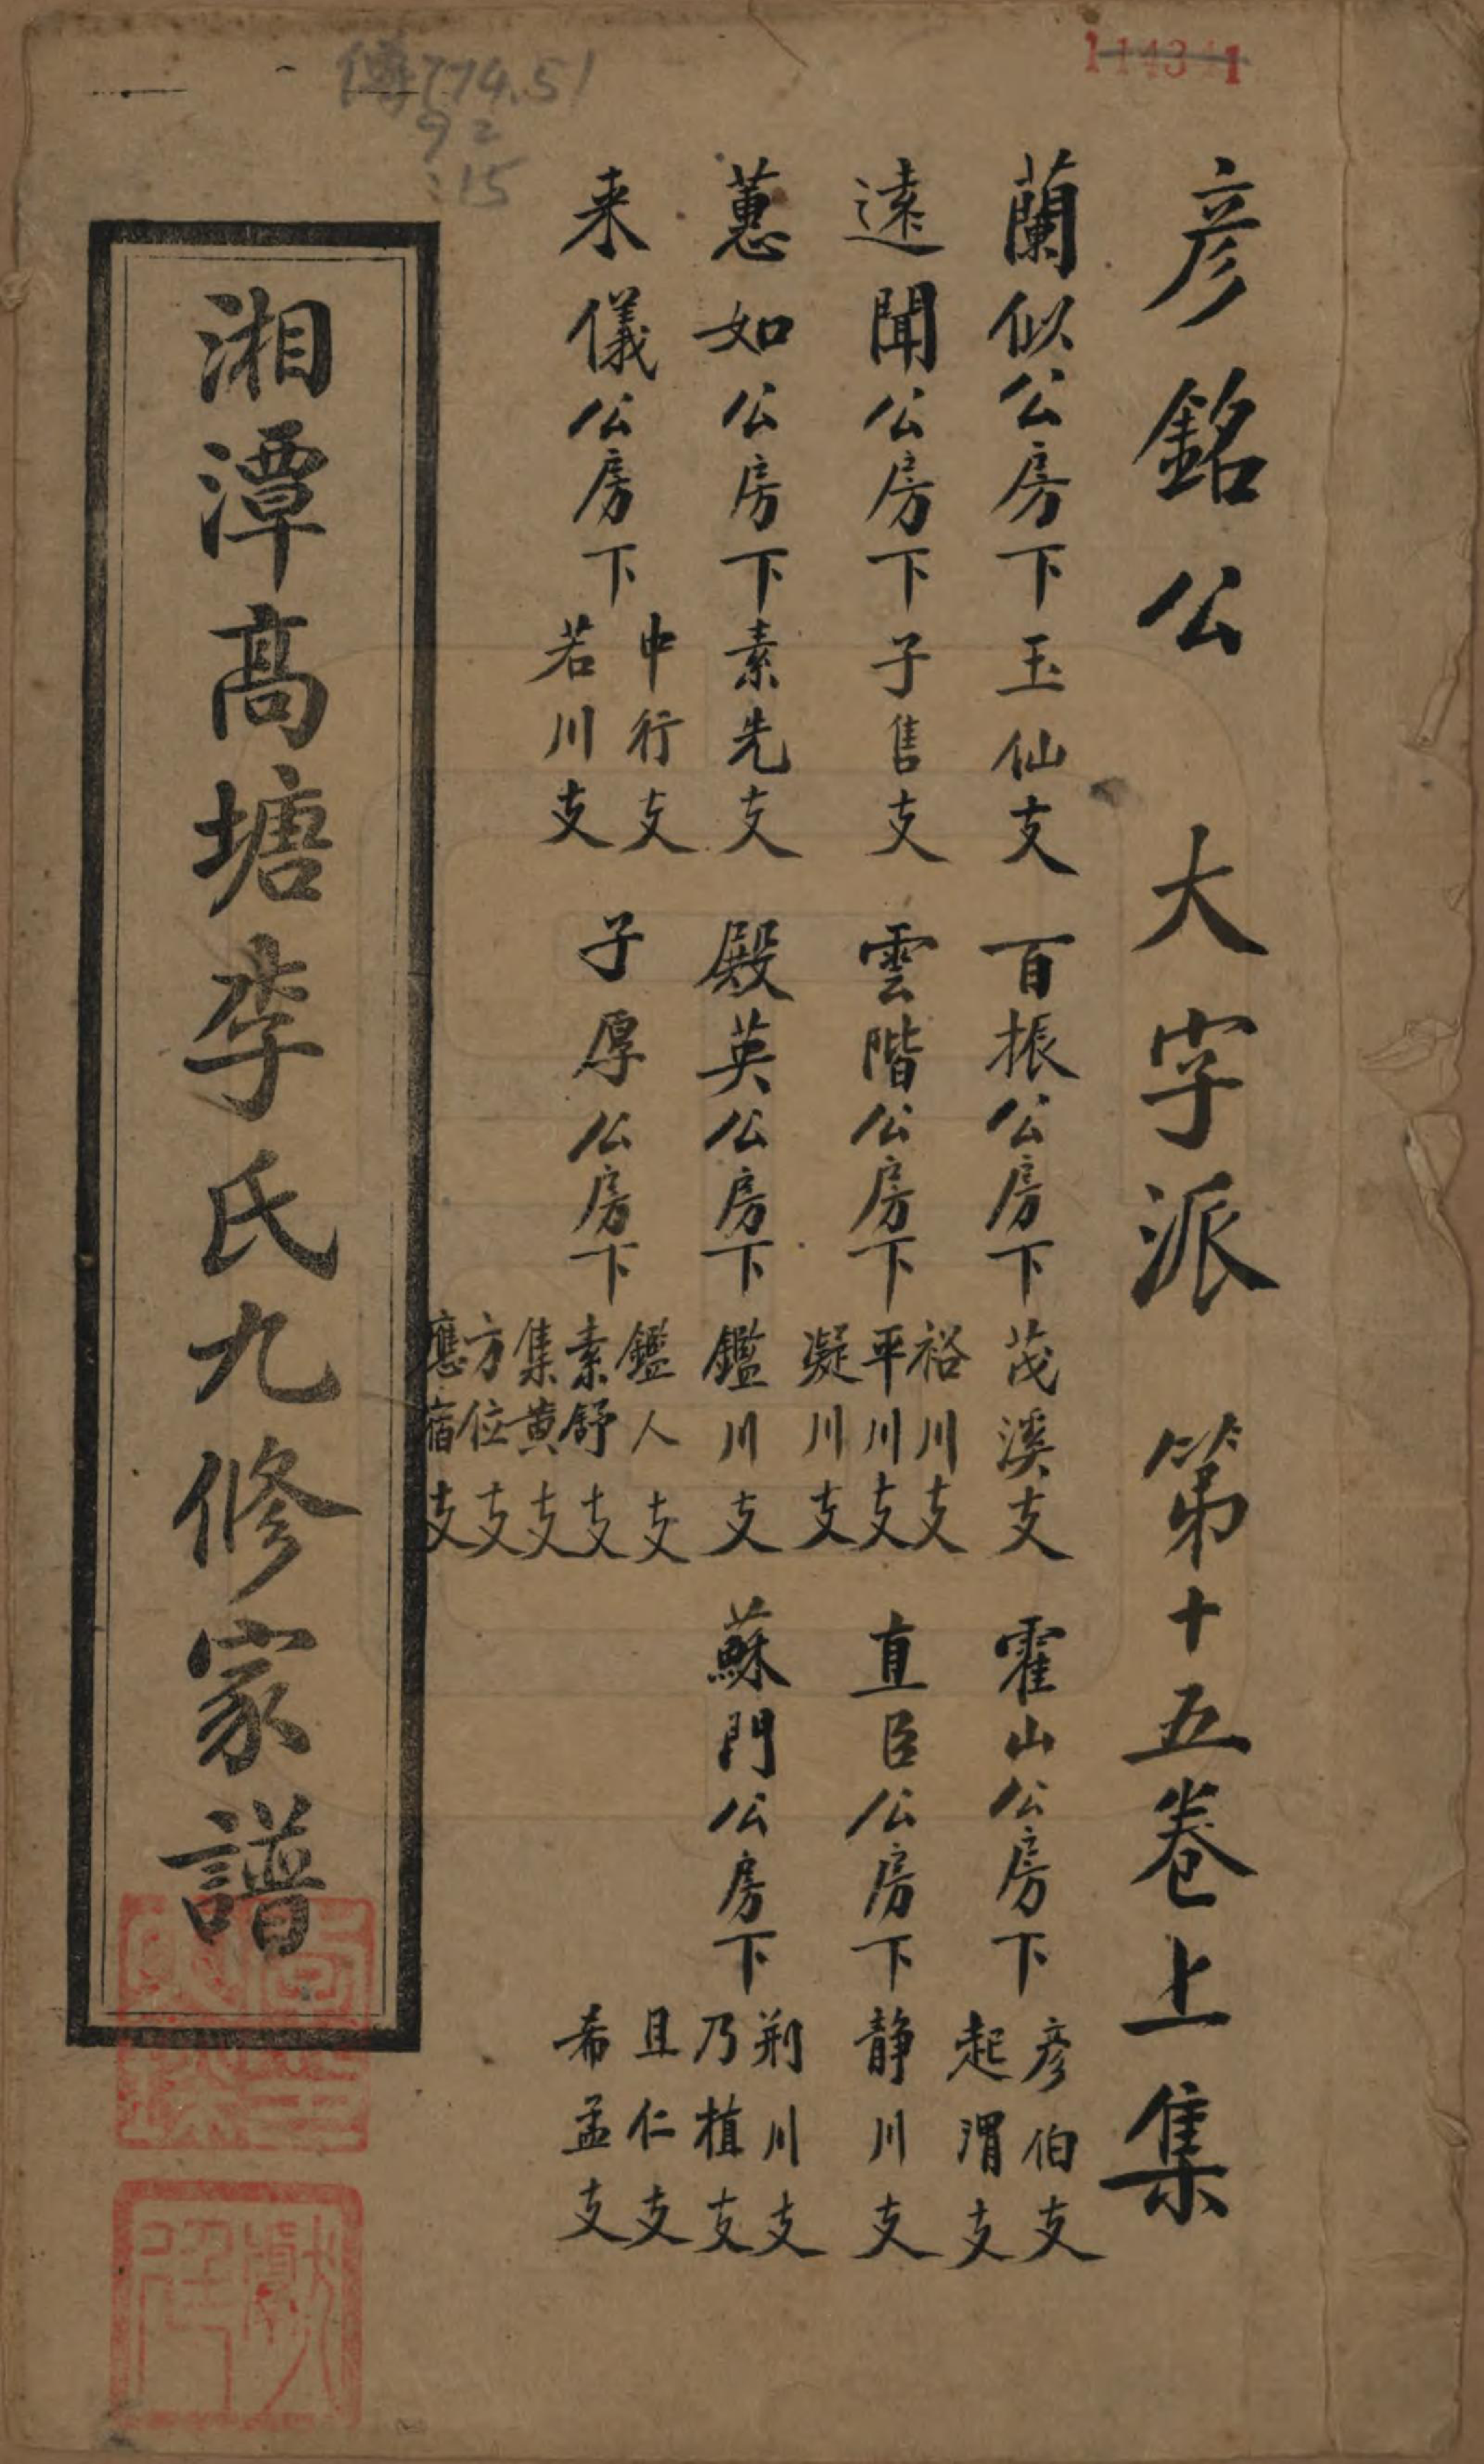 彦銘公 大字派 第十五卷上集
蘭似公房下玉仙支 百振公房下茂溪支 霍山公房下彦伯支 起渭支
遠聞公房下子售支 雲階公房下裕川支 平川支 凝川支 直臣公房下静川支
蕙如公房下素先支 殿英公房下鑑川支 蘇門公房下荆川支 乃植支 且仁支 希孟支
来儀公房下中行支 若川支 子厚公房下鑑人支 素舒支 集黄支 方位支 應宿支
湘潭高塘李氏九修家譜
傳774.51
92
:15
114341